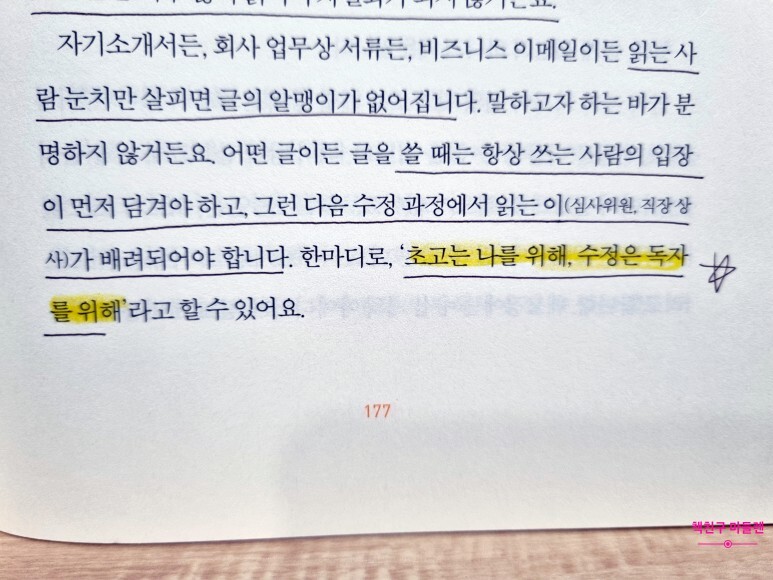 자기소개서든, 회사 업무상 서류든, 비즈니스 이메일이든 읽는 사
람 눈치만 살피면 글의 알맹이가 없어집니다. 말하고자 하는 바가 분
명하지 않거든요. 어떤 글이든 글을 쓸 때는 항상 쓰는 사람의 입장
이 먼저 담겨야 하고, 그런 다음 수정 과정에서 읽는 이(심사위원, 직장 상
사)가 배려되어야 합니다. 한마디로, ‘초고는 나를 위해, 수정은 독자
를 위해’라고 할 수 있어요.
177
책친구 마들렌